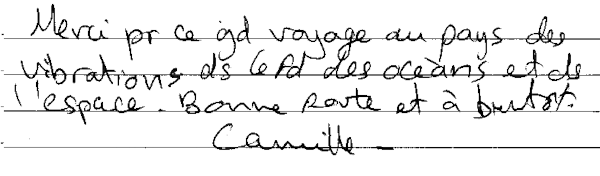 Merci pr ce gd voyage au pays des
vibrations ds le fd des océans et de
l'espace. Bonne route et à bientôt.
Camille